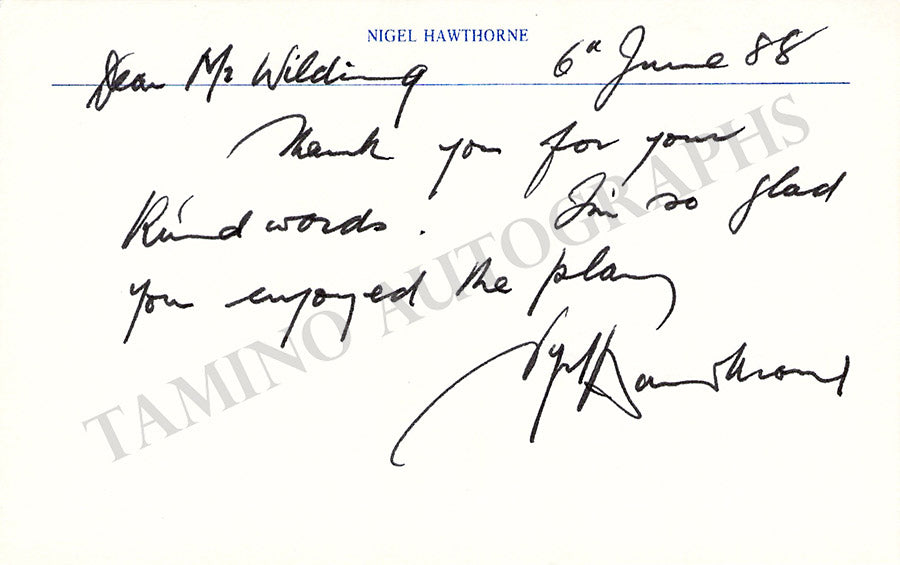 NIGEL HAWTHORNE
Dear Mr Wilding 6th June 88
Thank you for your
kind words. I'm so glad
you enjoyed the play
Nigel Hawthorne
TAMINO AUTOGRAPHS